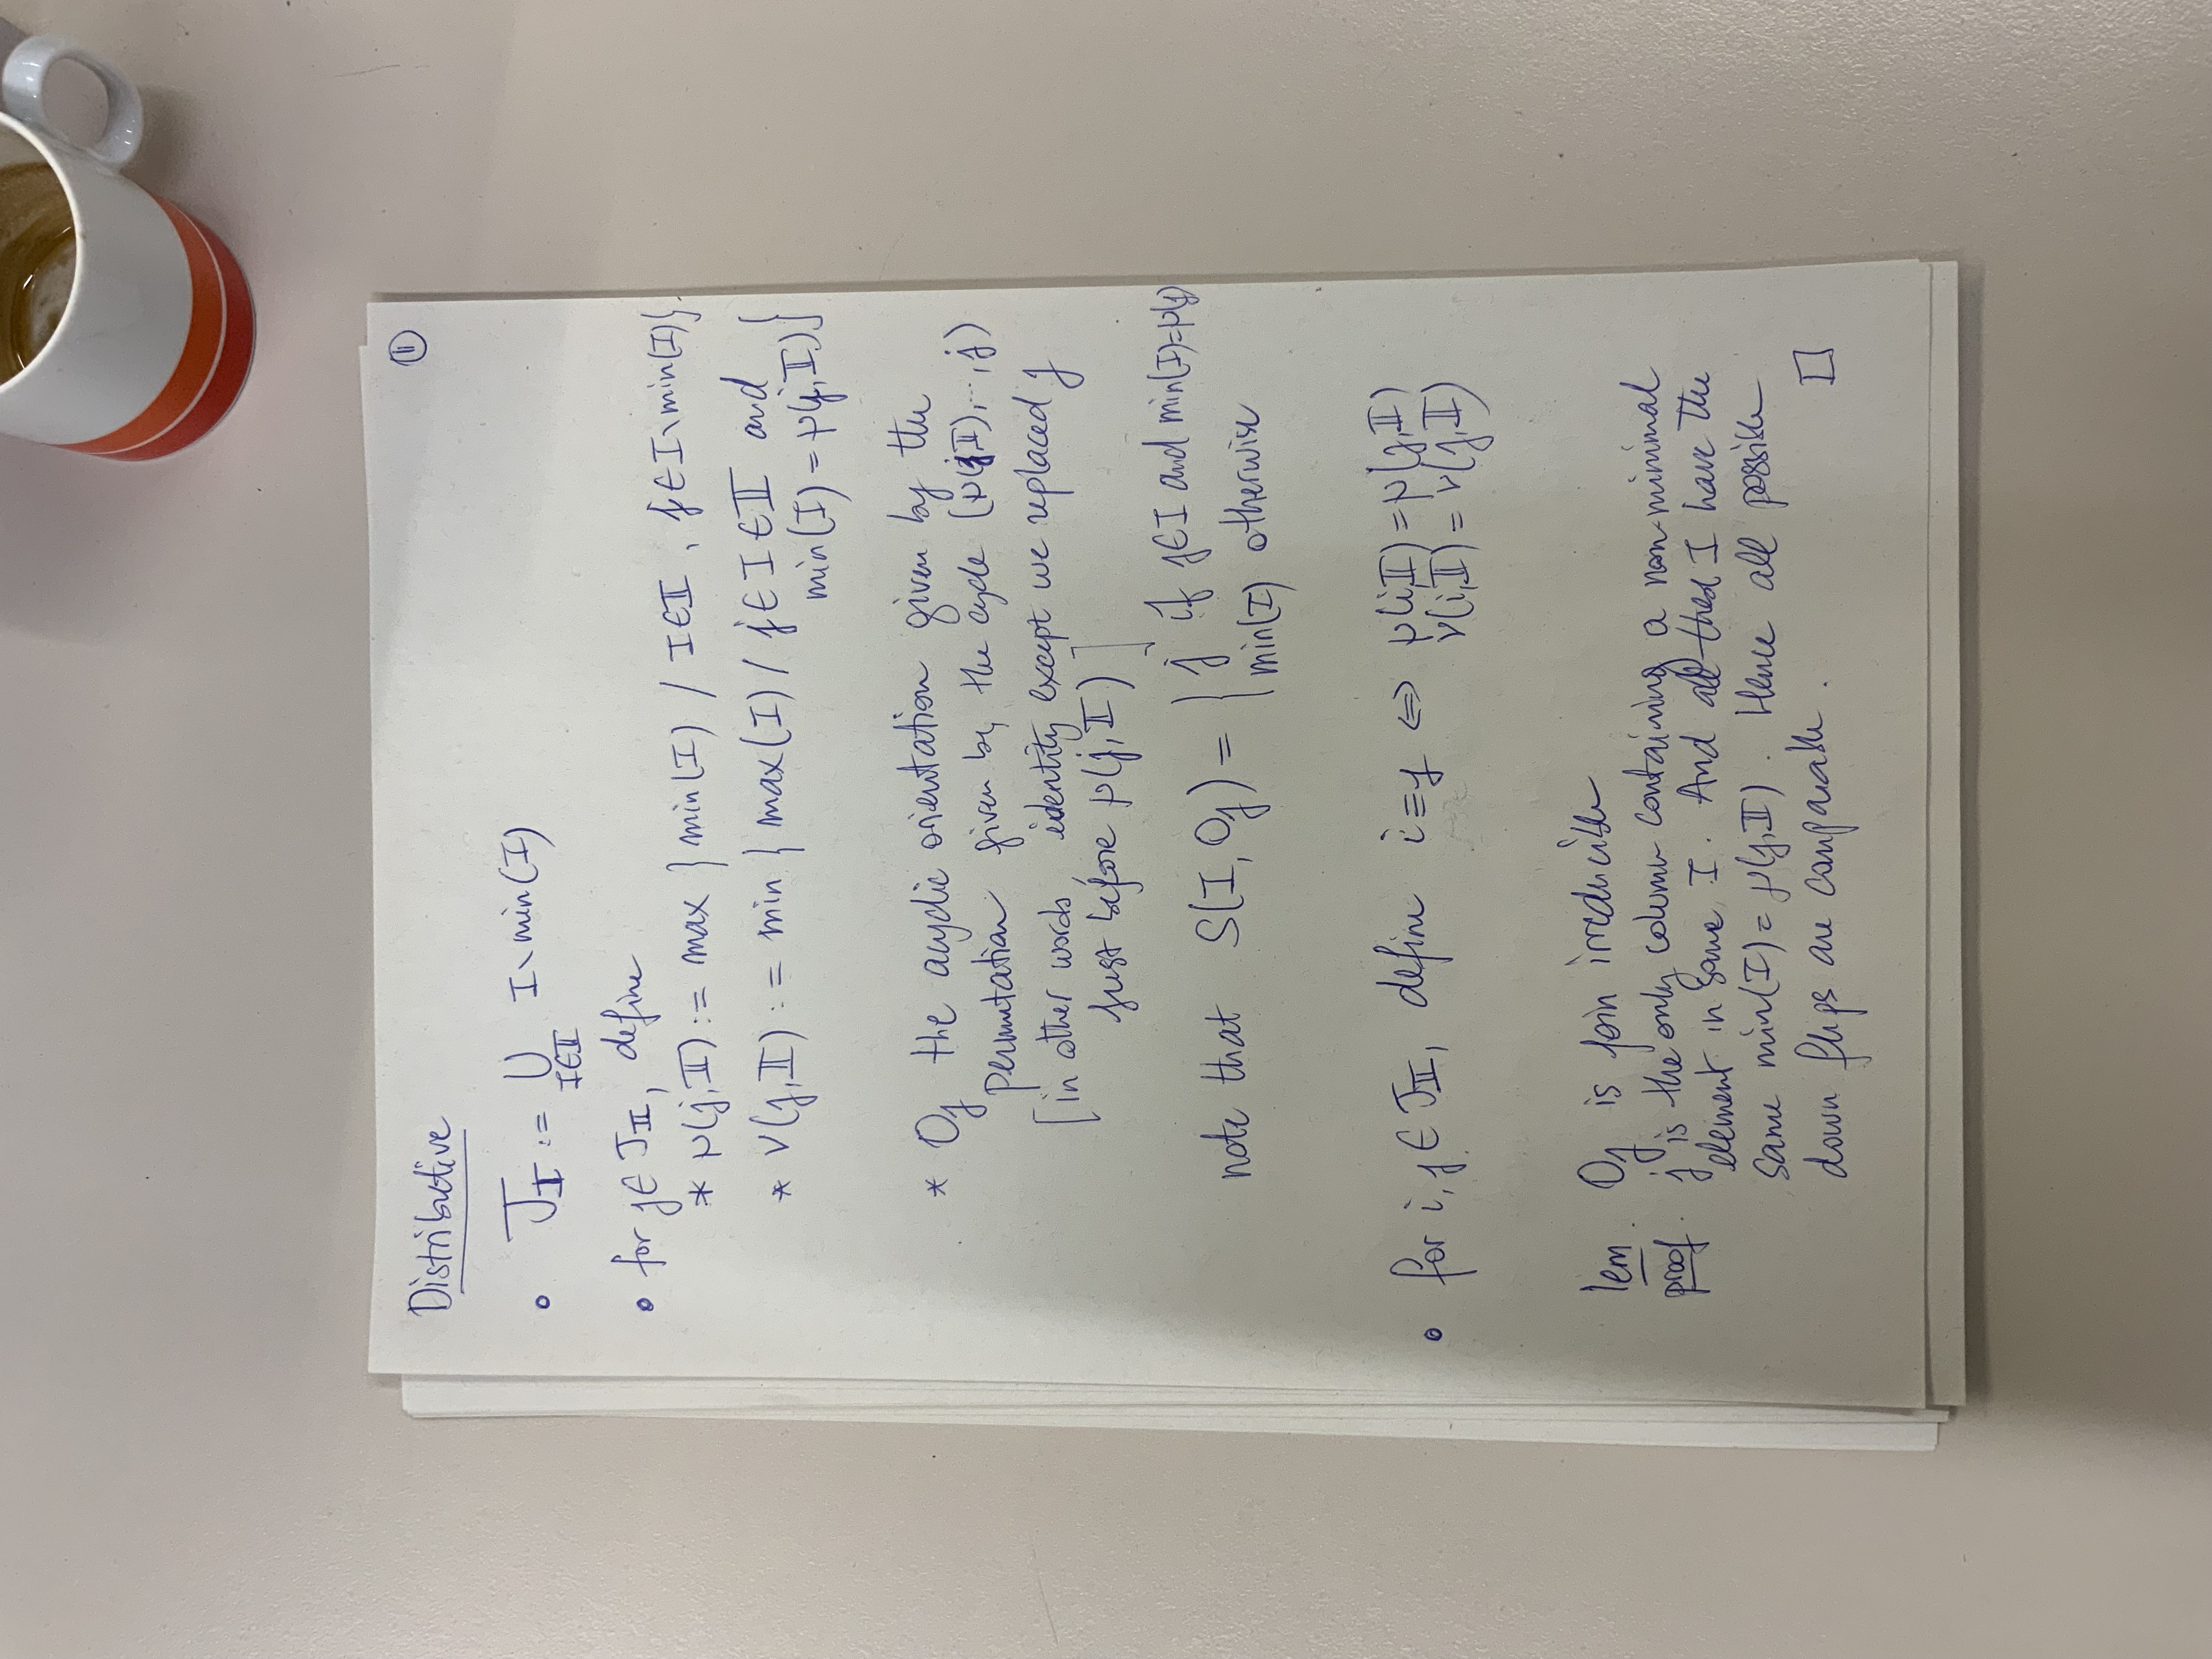 ①
Distributive
• J_𝕀 := ⋃_{I∈𝕀} I∖min(I)
• for j∈J_𝕀, define
* μ(j,𝕀) := max { min(I) / I∈𝕀, j∈I∖min(I)}
* ν(j,𝕀) := min { max(I) / j∈I∈𝕀 and
min(I) = μ(j,𝕀)}
* O_j the acyclic orientation given by the
permutation given by the cycle (μ(j,𝕀),…,j)
[in other words identity except we replaced j
just before μ(j,𝕀)]
note that S(I,O_j) = { j if j∈I and min(I)=μ(j)
min(I) otherwise
• for i,j ∈ J_𝕀, define i≡j ⇔ μ(i,𝕀)=μ(j,𝕀)
ν(i,𝕀)=ν(j,𝕀)
lem. O_j is join irreducible
proof. j is the only column containing a non-minimal
element in some I. And all these I have the
same min(I) = μ(j,𝕀). Hence all possible
down flips are comparable. □